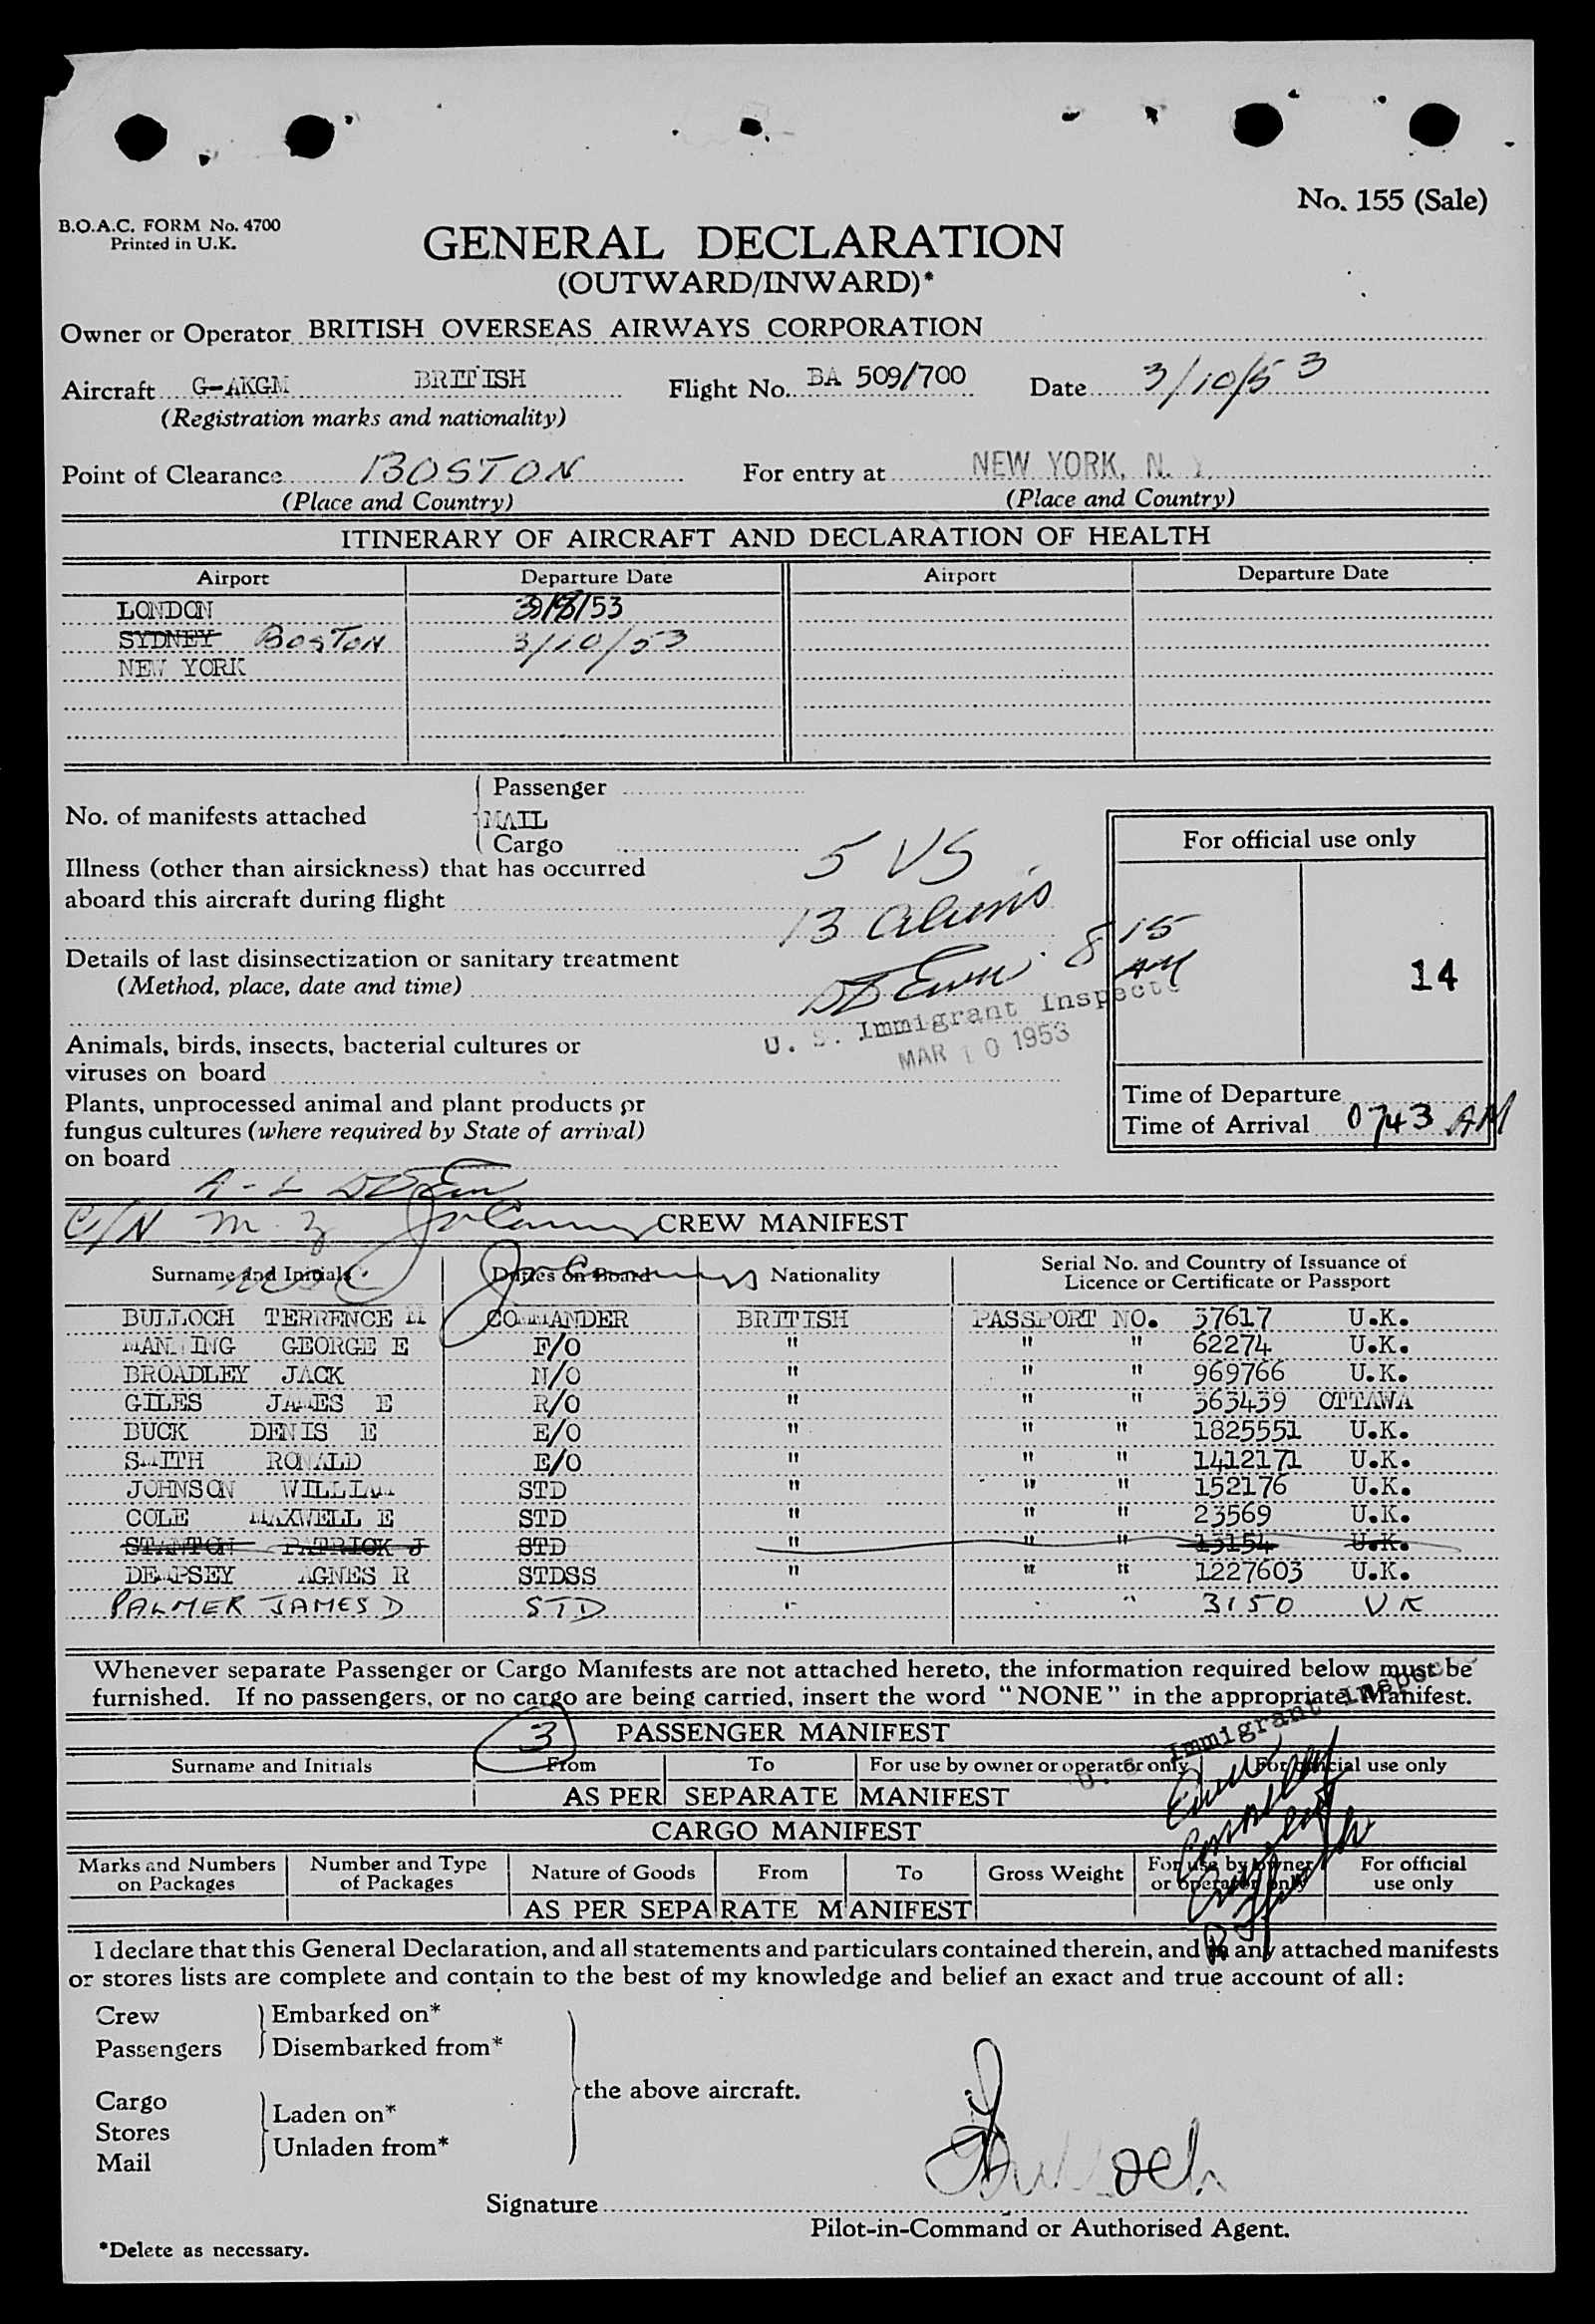 No. 155 (Sale)
B.O.A.C. FORM No. 4700
Printed in U.K.
GENERAL DECLARATION
(OUTWARD/INWARD)*
Owner or Operator BRITISH OVERSEAS AIRWAYS CORPORATION
Aircraft G-AKGM BRITISH Flight No. BA 509/700 Date 3/10/53
(Registration marks and nationality)
Point of Clearance BOSTON For entry at NEW YORK, N. Y.
(Place and Country) (Place and Country)
ITINERARY OF AIRCRAFT AND DECLARATION OF HEALTH
Airport Departure Date Airport Departure Date
LONDON /53
SYDNEY BOSTON 3/10/53
NEW YORK
Passenger
No. of manifests attached
MAIL
Cargo
5 US
13 aliens
Illness (other than airsickness) that has occurred
aboard this aircraft during flight
Details of last disinsectization or sanitary treatment
(Method, place, date and time)
8 15 AM
U. S. Immigrant Inspecto
MAR 10 1953
Animals, birds, insects, bacterial cultures or
viruses on board
Plants, unprocessed animal and plant products or
fungus cultures (where required by State of arrival)
on board
For official use only
14
Time of Departure
Time of Arrival 0743 AM
CREW MANIFEST
Surname and Initials Duties on Board Nationality Serial No. and Country of Issuance of
Licence or Certificate or Passport
BULLOCH TERRENCE M COMMANDER BRITISH PASSPORT NO. 37617 U.K.
MANNING GEORGE E F/O " " " 62274 U.K.
BROADLEY JACK N/O " " " 969766 U.K.
GILES JAMES E R/O " " " 363439 OTTAWA
BUCK DENIS E E/O " " " 1825551 U.K.
SMITH RONALD E/O " " " 1412171 U.K.
JOHNSON WILLIAM STD " " " 152176 U.K.
COLE MAXWELL E STD " " " 23569 U.K.
STANTON PATRICK J STD " " " 13154 U.K.
DEMPSEY AGNES R STDSS " " " 1227603 U.K.
PALMER JAMES D STD " " " 3150 UK
Whenever separate Passenger or Cargo Manifests are not attached hereto, the information required below must be
furnished. If no passengers, or no cargo are being carried, insert the word "NONE" in the appropriate Manifest.
3 PASSENGER MANIFEST
U. S. Immigrant Inspec
Surname and Initials From To For use by owner or operator only For official use only
AS PER SEPARATE MANIFEST
CARGO MANIFEST
Marks and Numbers on Packages Number and Type of Packages Nature of Goods From To Gross Weight For use by owner or operator only For official use only
AS PER SEPARATE MANIFEST
I declare that this General Declaration, and all statements and particulars contained therein, and in any attached manifests
or stores lists are complete and contain to the best of my knowledge and belief an exact and true account of all:
Crew Embarked on*
Passengers Disembarked from*
the above aircraft.
Cargo
Laden on*
Stores
Unladen from*
Mail
Bulloch
Signature
Pilot-in-Command or Authorised Agent.
*Delete as necessary.